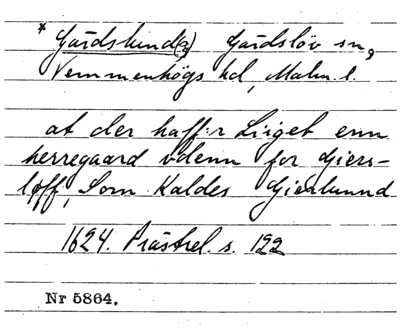 * Gårdslund(a) Gårdslöv sn,
Vemmenhögs hd, Malm. l.
at der haffr Liget enn
herregaard vdenn for Giers-
löff, Som Kaldes Gierslunnd
1624. Prästrel. s. 122
Nr 5864.